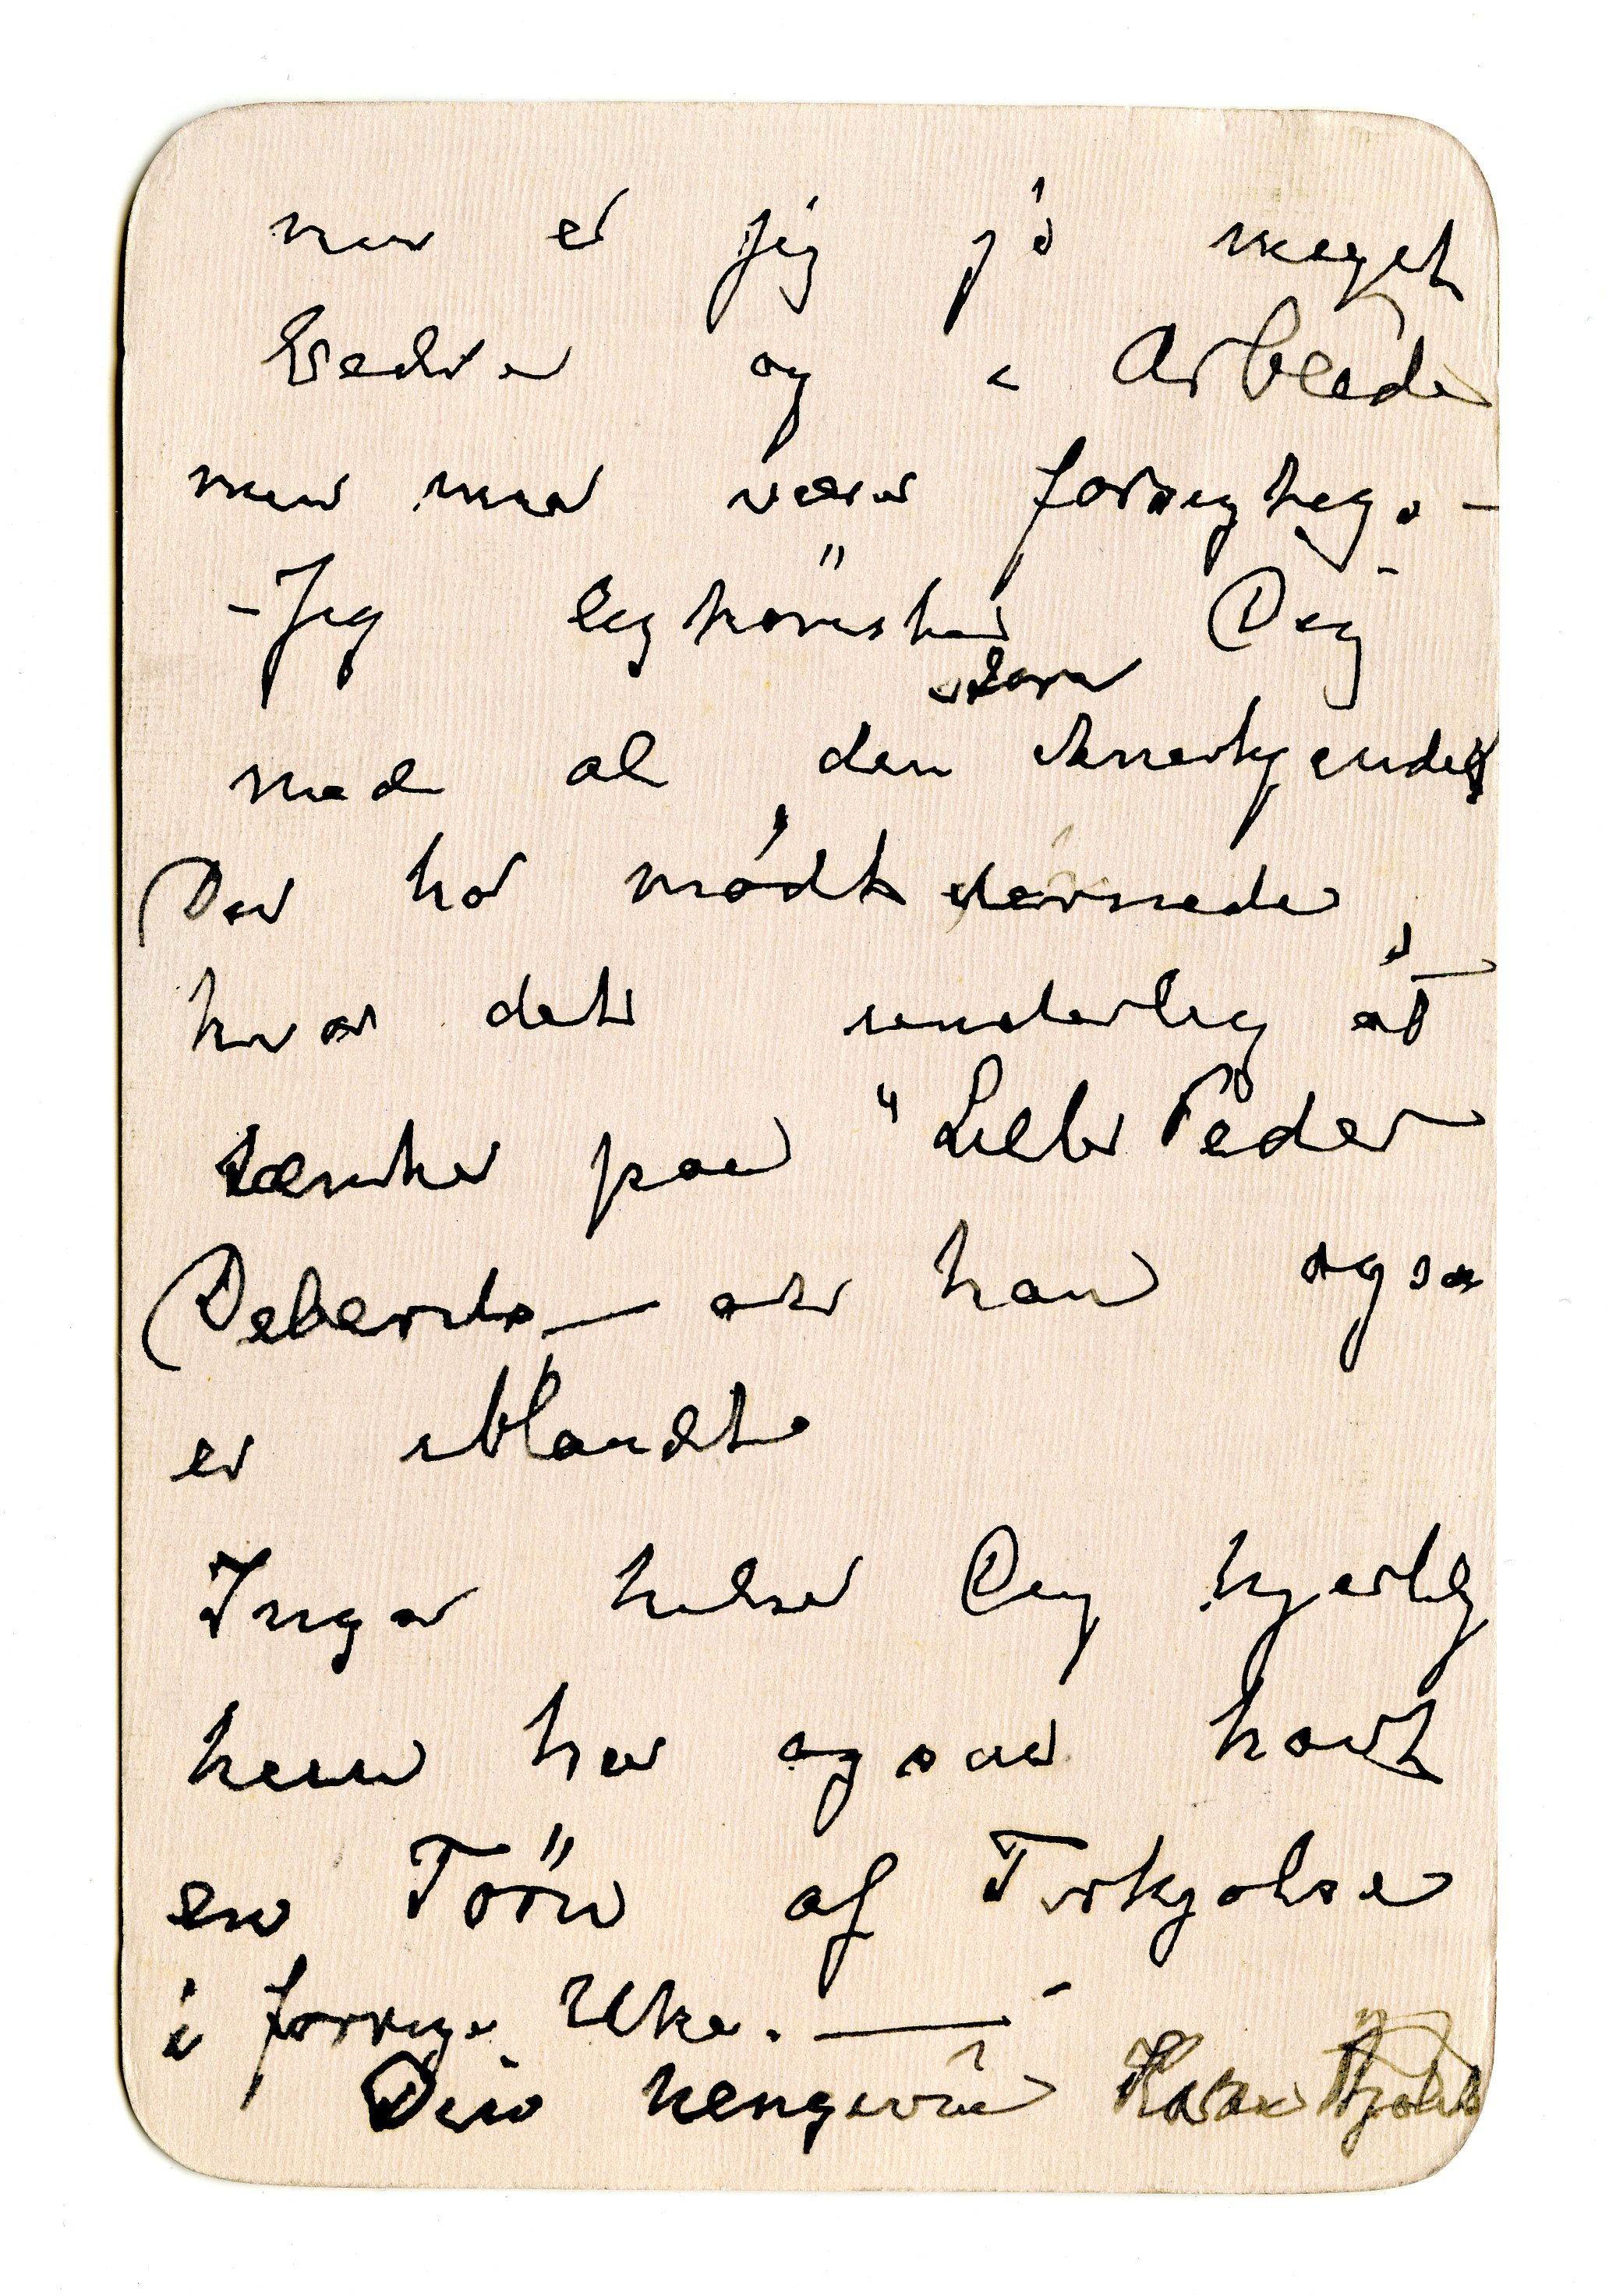 nu er jeg jo meget
bedre og i Arbeide
men maa være forsigtig. –
– Jeg lykönsker Dig
store
med al den Anerkjendelse
Du har mødt dernede,
hvor det er underlig at
tænke paa "Lille Peder
at han ogsaa
er iblandt.
Inga hilser Dig hjertelig
hun har ogsaa havt
en Törn af Forkjølelse
i forrige Uke. —
Din hengivne